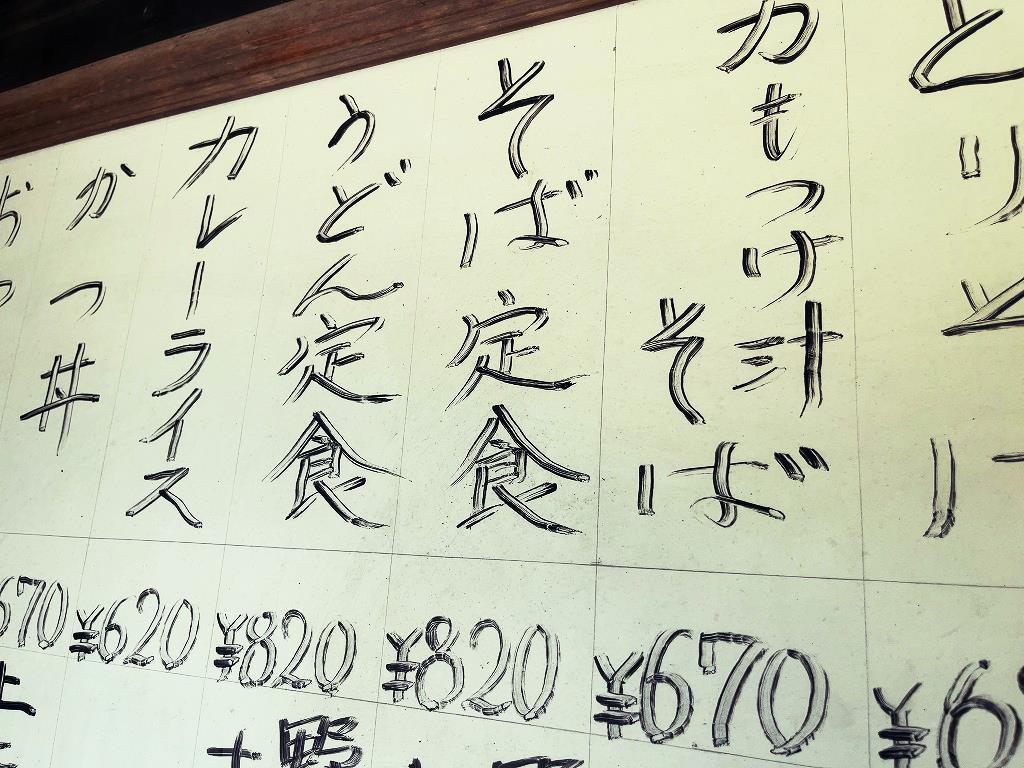 かもつけ汁そば
¥670
そば定食
¥820
うどん定食
¥820
カレーライス
¥620
かつ丼
670